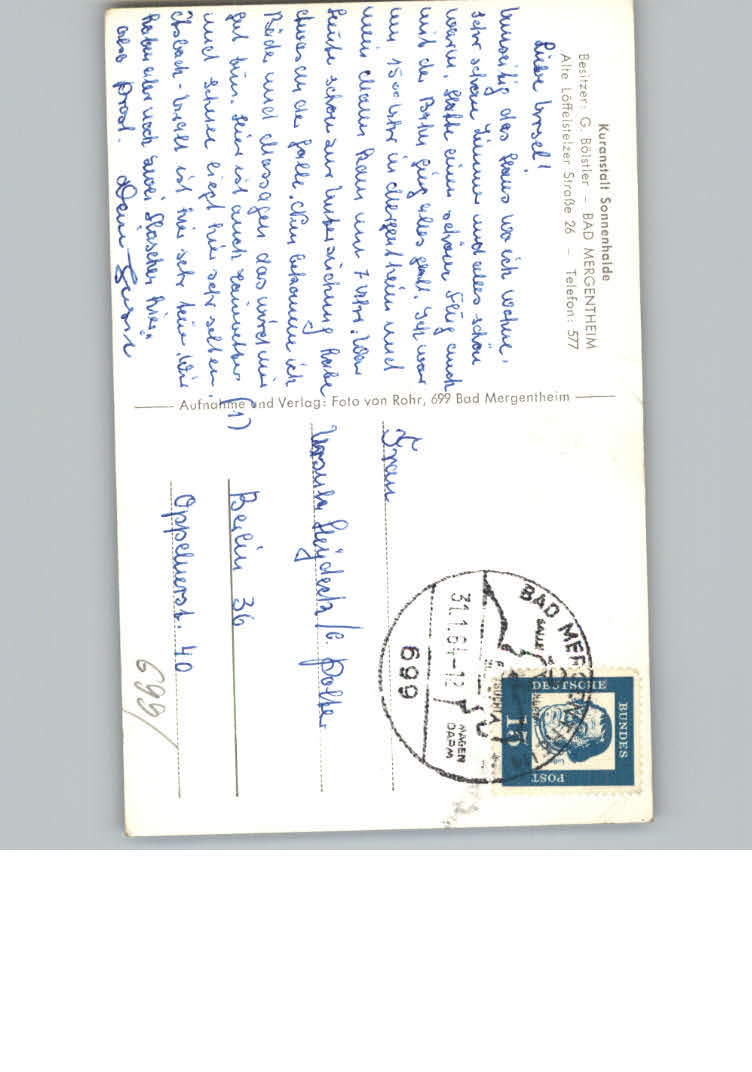 Kuranstalt Sonnenhalde
Besitzer: G. Bölstler – BAD MERGENTHEIM
Alte Löffelstelzer Straße 26 – Telefon: 577
Liebe Ursel!
das Haus wo ich wohne,
sehr schöne Zimmer und alles schön
warm. Hatte einen schönen Flug auch
mit der Bahn ging alles glatt. Ich war
um 15 00 Uhr in Mergentheim und
mein Mann kam um 7 Uhr. War
heute schon zur Untersuchung habe
etwas an der Galle. Nun bekomme ich
Bäder und Massagen das wird mir
gut tun. Hier ist auch
und Schnee liegt hier sehr selten.
ist hier sehr
haben aber noch zwei Flaschen hier,
also Prost. Dein
Aufnahme und Verlag: Foto von Rohr, 699 Bad Mergentheim
Frau
Ursula /b.
(1) Berlin 36
Oppelnerst. 40
699/
BAD MERGENTHEIM
31.1.64-12
699
DEUTSCHE
BUNDES
POST
15